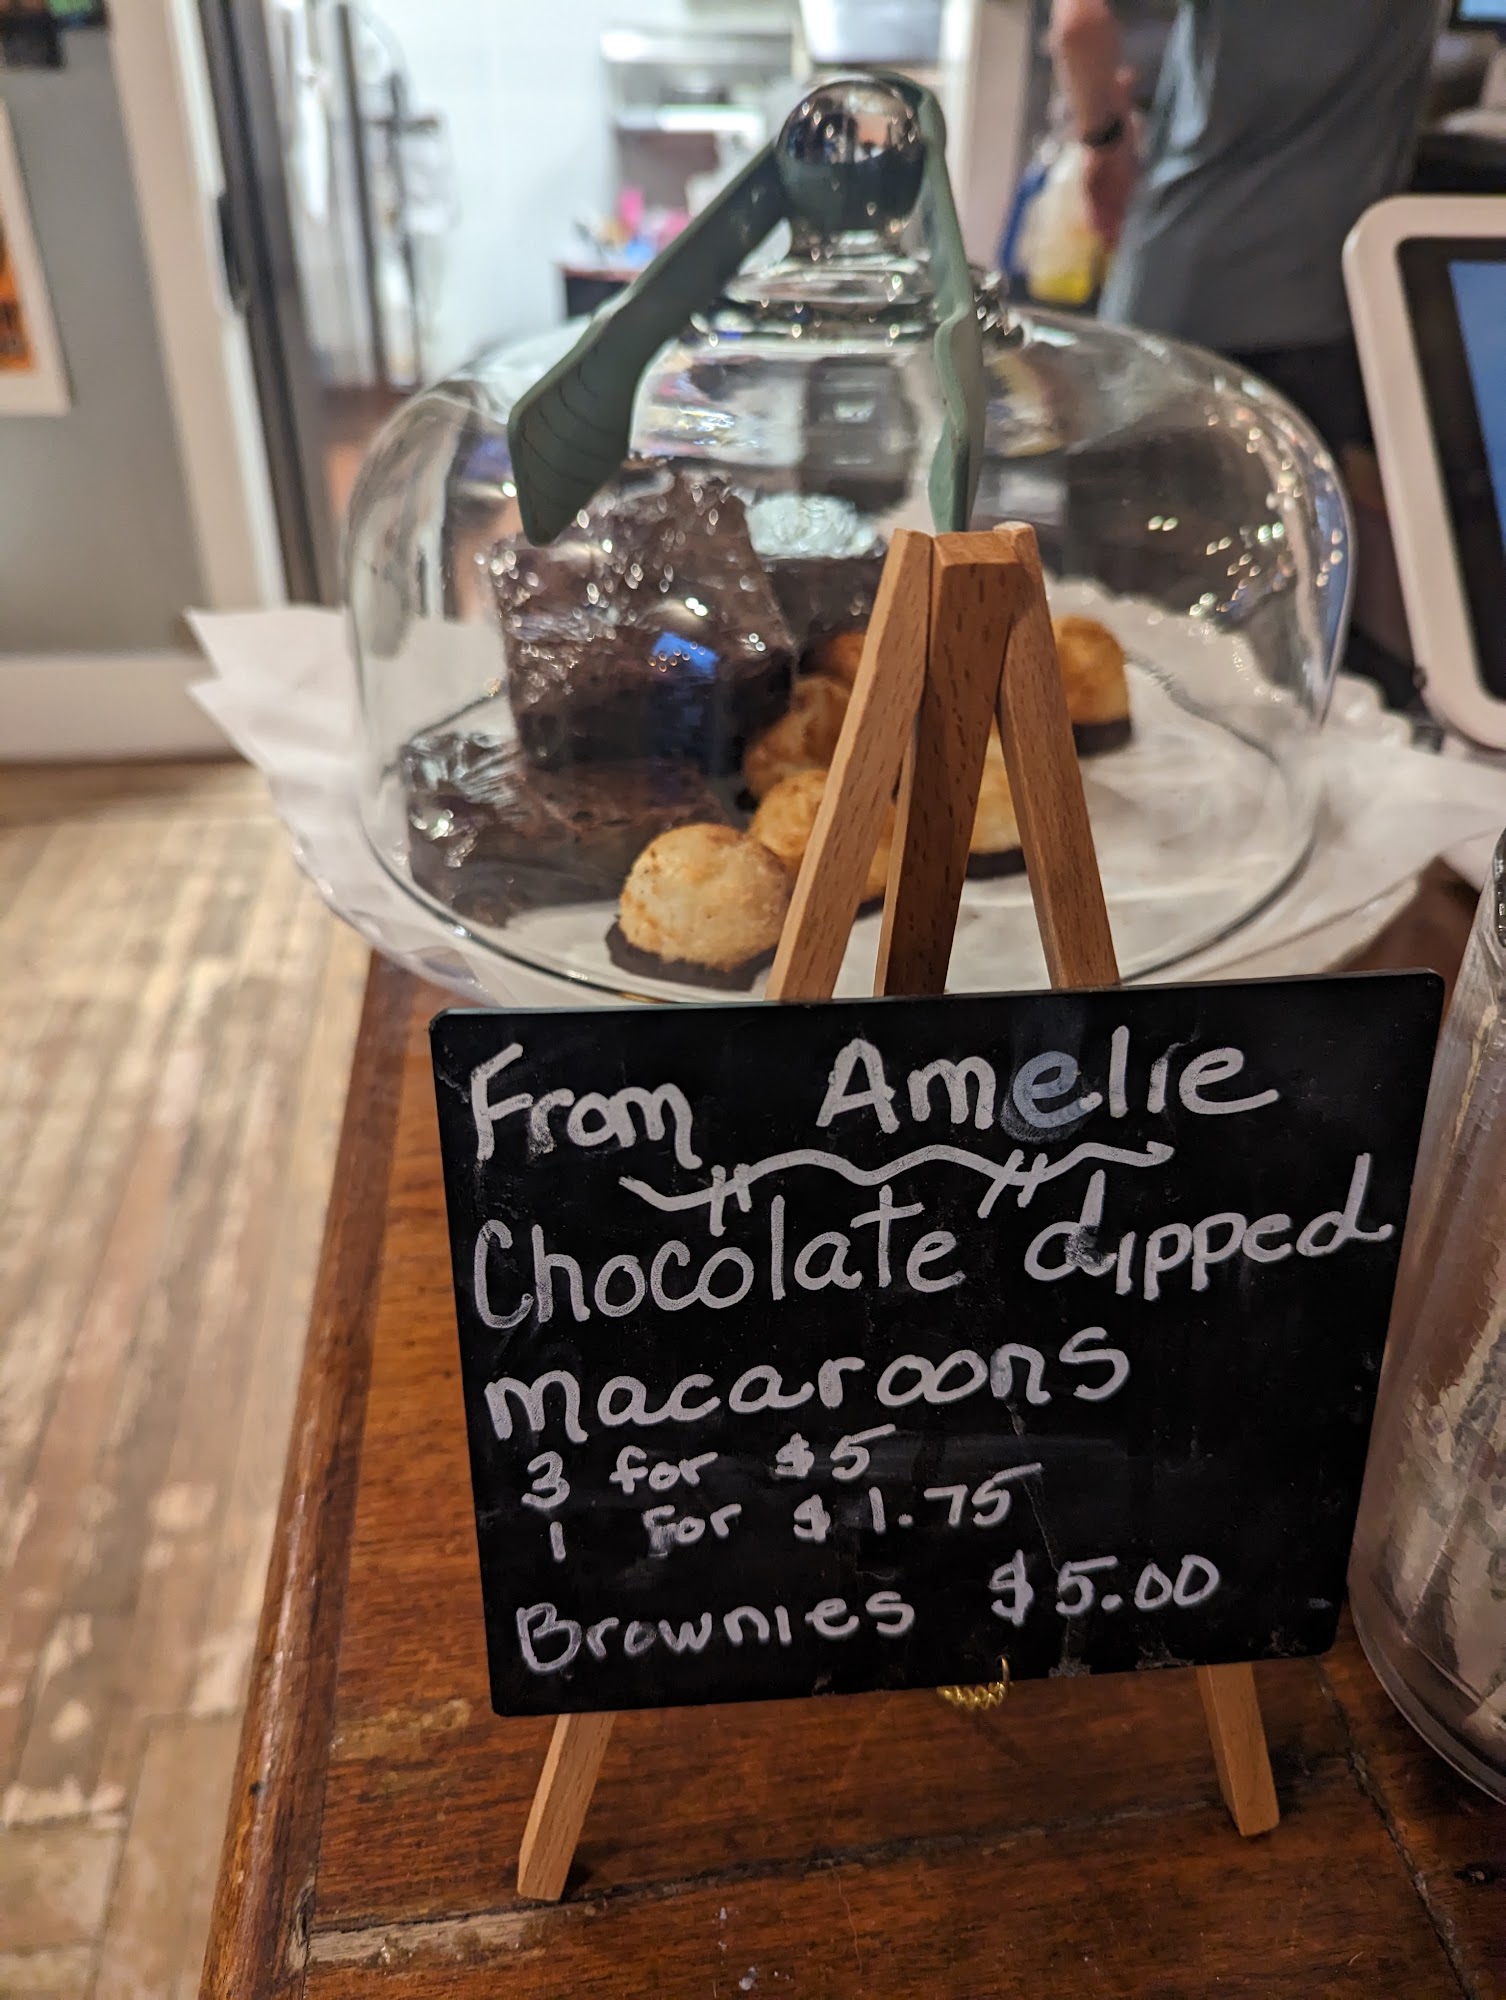 From Amelie
Chocolate dipped
macaroons
3 for $5
1 For $1.75
Brownies $5.00